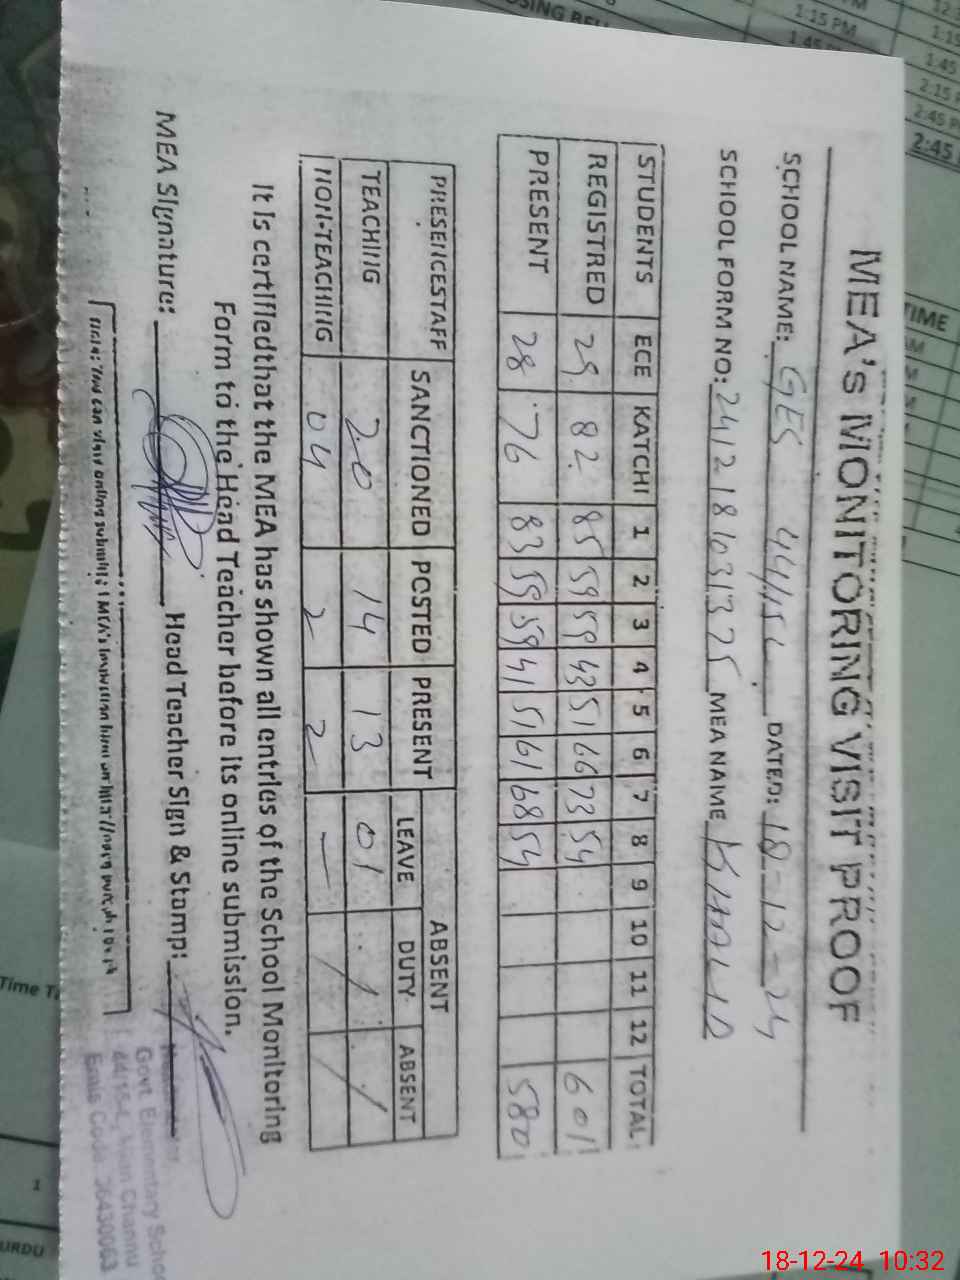 MEA's MONITORING VISIT PROOF
SCHOOL NAME: GES 44/15L DATED: 18-12-24
SCHOOL FORM NO: 241218031325 MEA NAME KHALID
STUDENTS ECE KATCHI 1 2 3 4 5 6 7 8 9 10 11 12 TOTAL
REGISTRED 29 82 85 59 59 43 51 66 73 54 601
PRESENT 28 76 83 59 59 41 51 61 68 54 580
PRESENCESTAFF SANCTIONED POSTED PRESENT ABSENT
LEAVE DUTY ABSENT
TEACHING 20 14 13 01 / /
NON-TEACHING 04 2 2 – / /
It is certifiedthat the MEA has shown all entries of the School Monitoring
Form to the Head Teacher before its online submission.
MEA Signature: Head Teacher Sign & Stamp:
Govt. Elementary School
44/15-L, Mian Channu
Emis Code 36430063
You can visit online submitted MEA's Inspection form on
SING BELL
1:15 PM
1:45 PM
1:15
1:45
2:15 P
2:45 P
2:45
TIME
AM
Time T
1
URDU
18-12-24 10:32